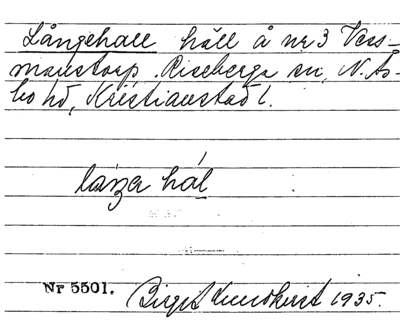 Långehall häll å nr 3 Vers-
manstorp. Riseberga sn, N. Ås-
bo hd, Kristianstad l.
låŋa hál
Nr 5501.
Birgit Lundkvist 1935.